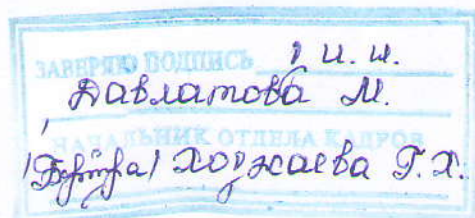 ЗАВЕРЯЮ ПОДПИСЬ и.и.
Давлатова М.
НАЧАЛЬНИК ОТДЕЛА КАДРОВ
Ходжаева Г.Х.